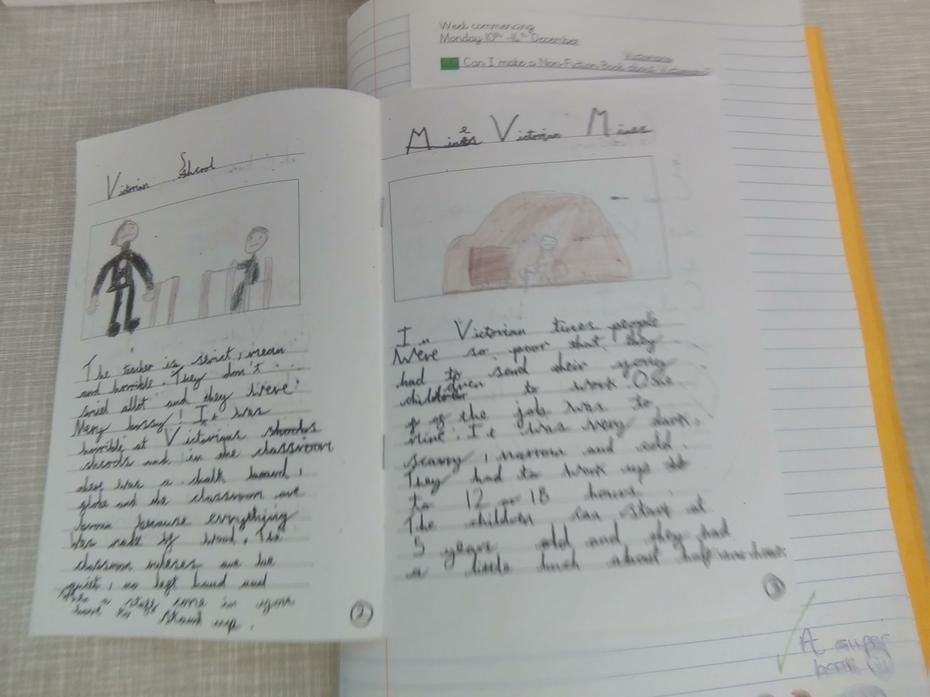 Week commencing
Monday 10th - 14th December
Victorians
Can I make a Non-Fiction Book about Victorians?
Victorian Shcool
The teacher is strict, mean
and horrible. They don't
smiel allot and they were
Very bossy! It was
horrible at Victorian shcools
shcools and in the classroom
they was a chalk board,
globe and the classroom are
brown because everything
was made of wood. The
classroom are be
quiet, no left hand and
come in
stand up.
2
Victorian Mines
In Victorian times people
Were so poor that they
had to send their young
children to work One
of the job was to
mine. It was very dark,
scarry, narrow and cold.
They had to work up
to 12 or 18 hours.
The children can start at
5 years old and they had
a little luch about half-an-hour.
3
A super
book